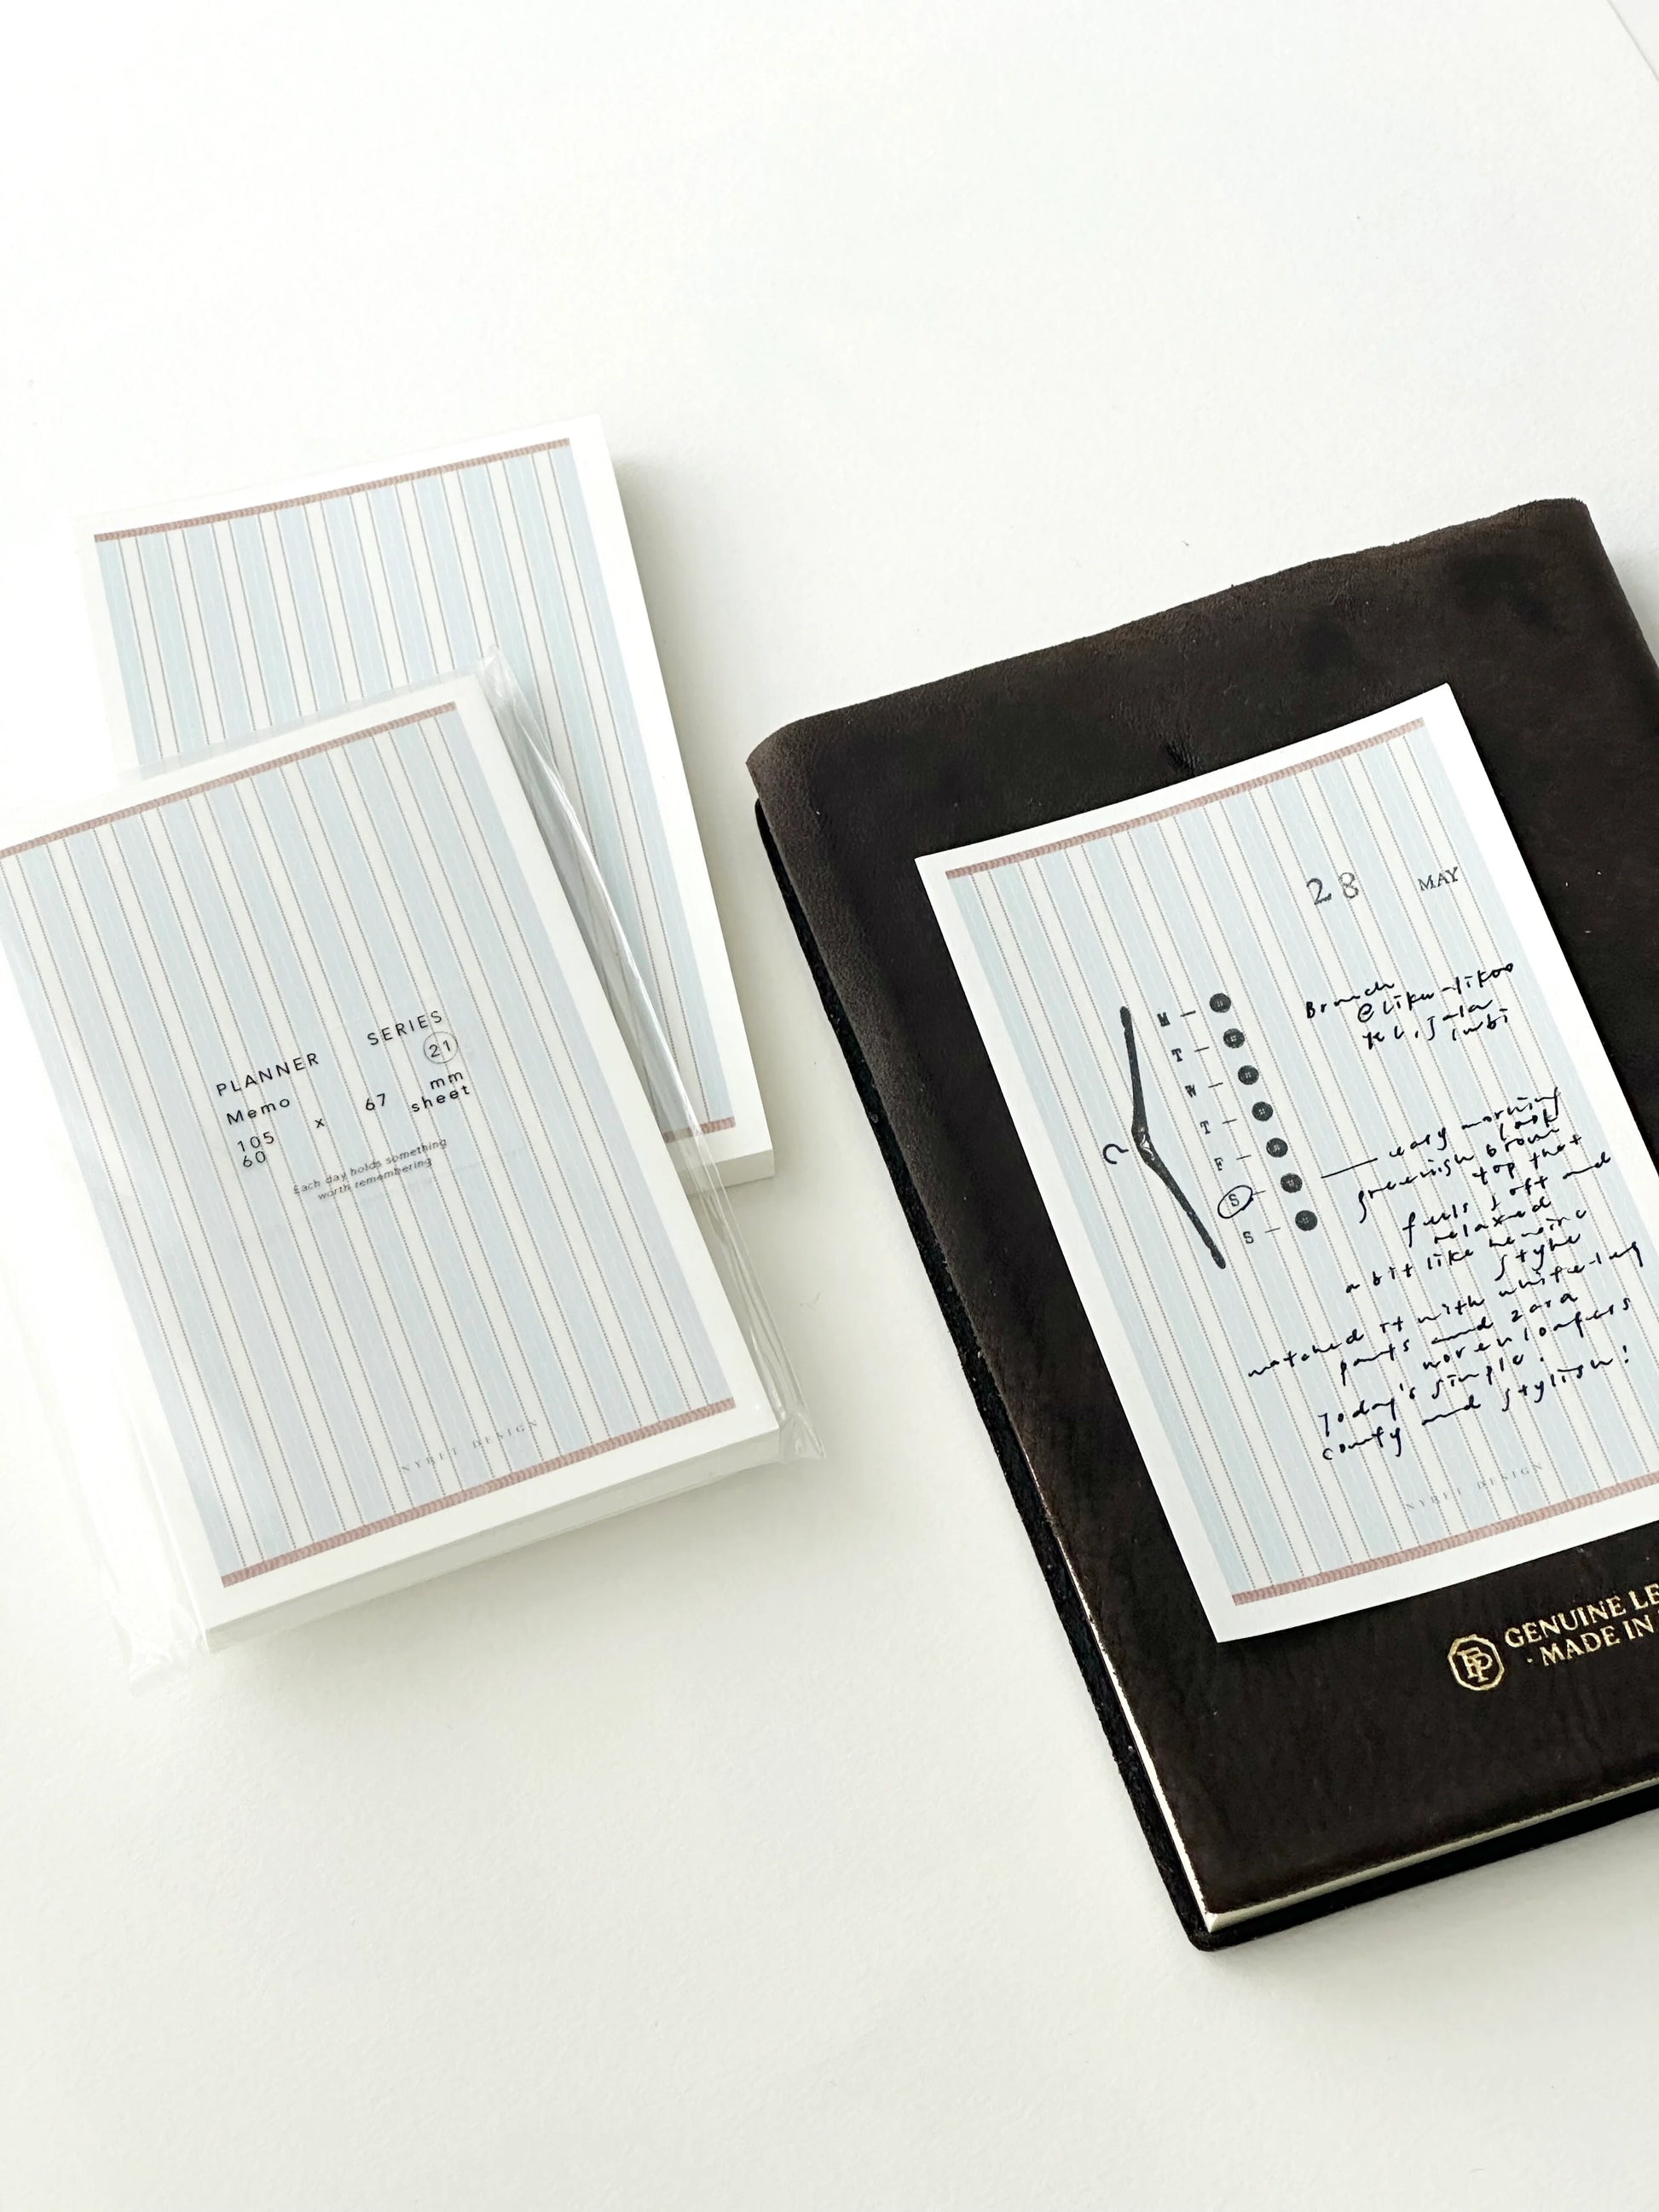 PLANNER SERIES
Memo 21
105 x 67 mm
60 sheet
Each day holds something
worth remembering
NYRET DESIGN
28 MAY
M
T
W
T
F
S
S
Brunch
@
KL, jalan
early morning
look
greenish brown
top that
feels soft and
relaxed
a bit like
style
matched it with
pants and zara
woven loafers
Today's simple.
comfy and stylish!
DESIGN
GENUINE
MADE IN